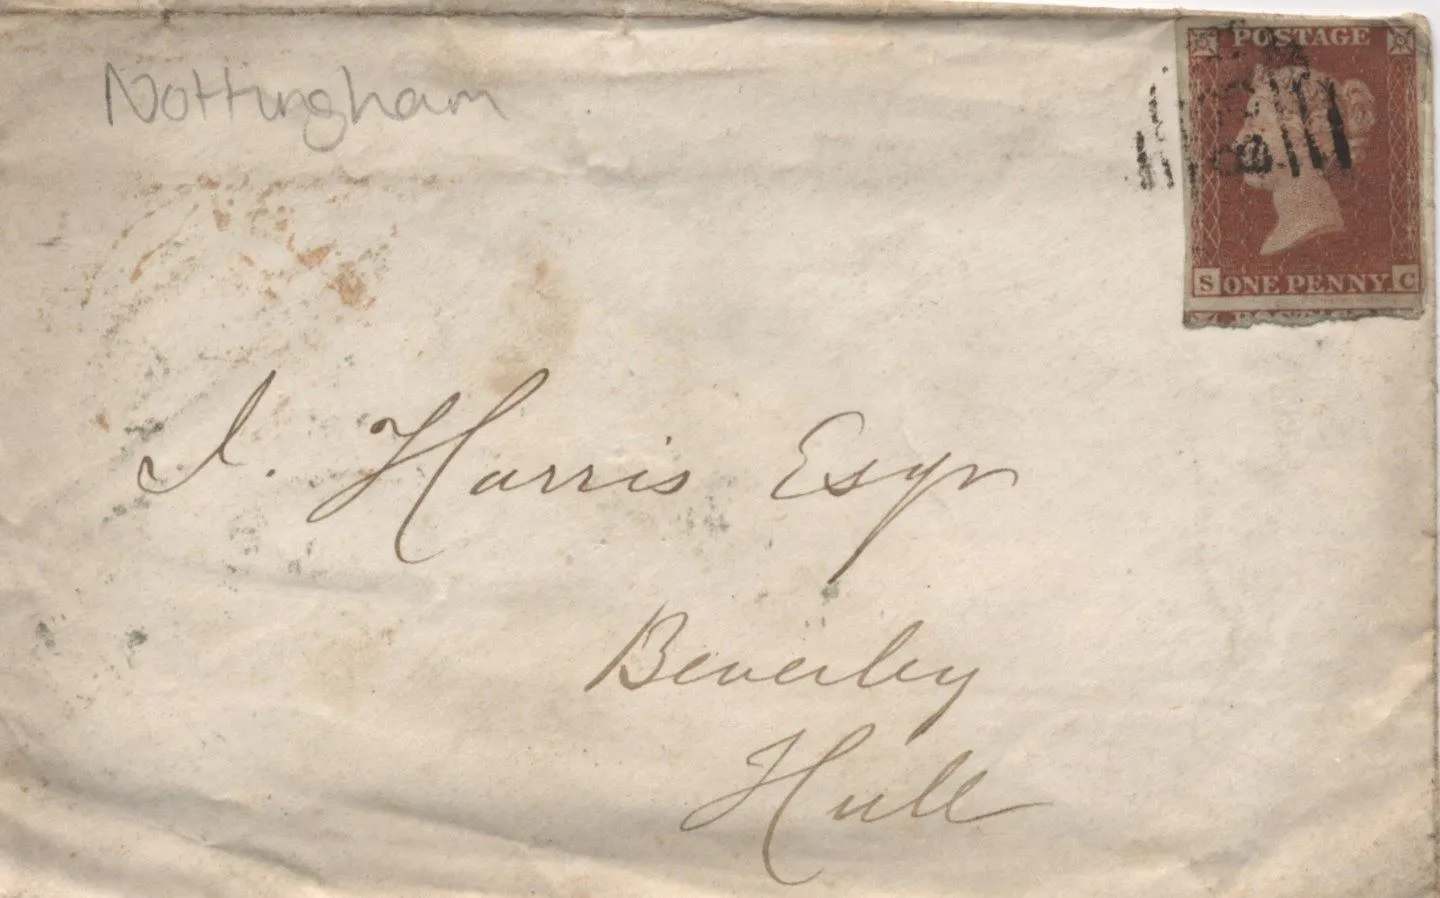 Nottingham
POSTAGE
S ONE PENNY. C
POSTAGE
J. Harris Esqr
Beverley
Hull